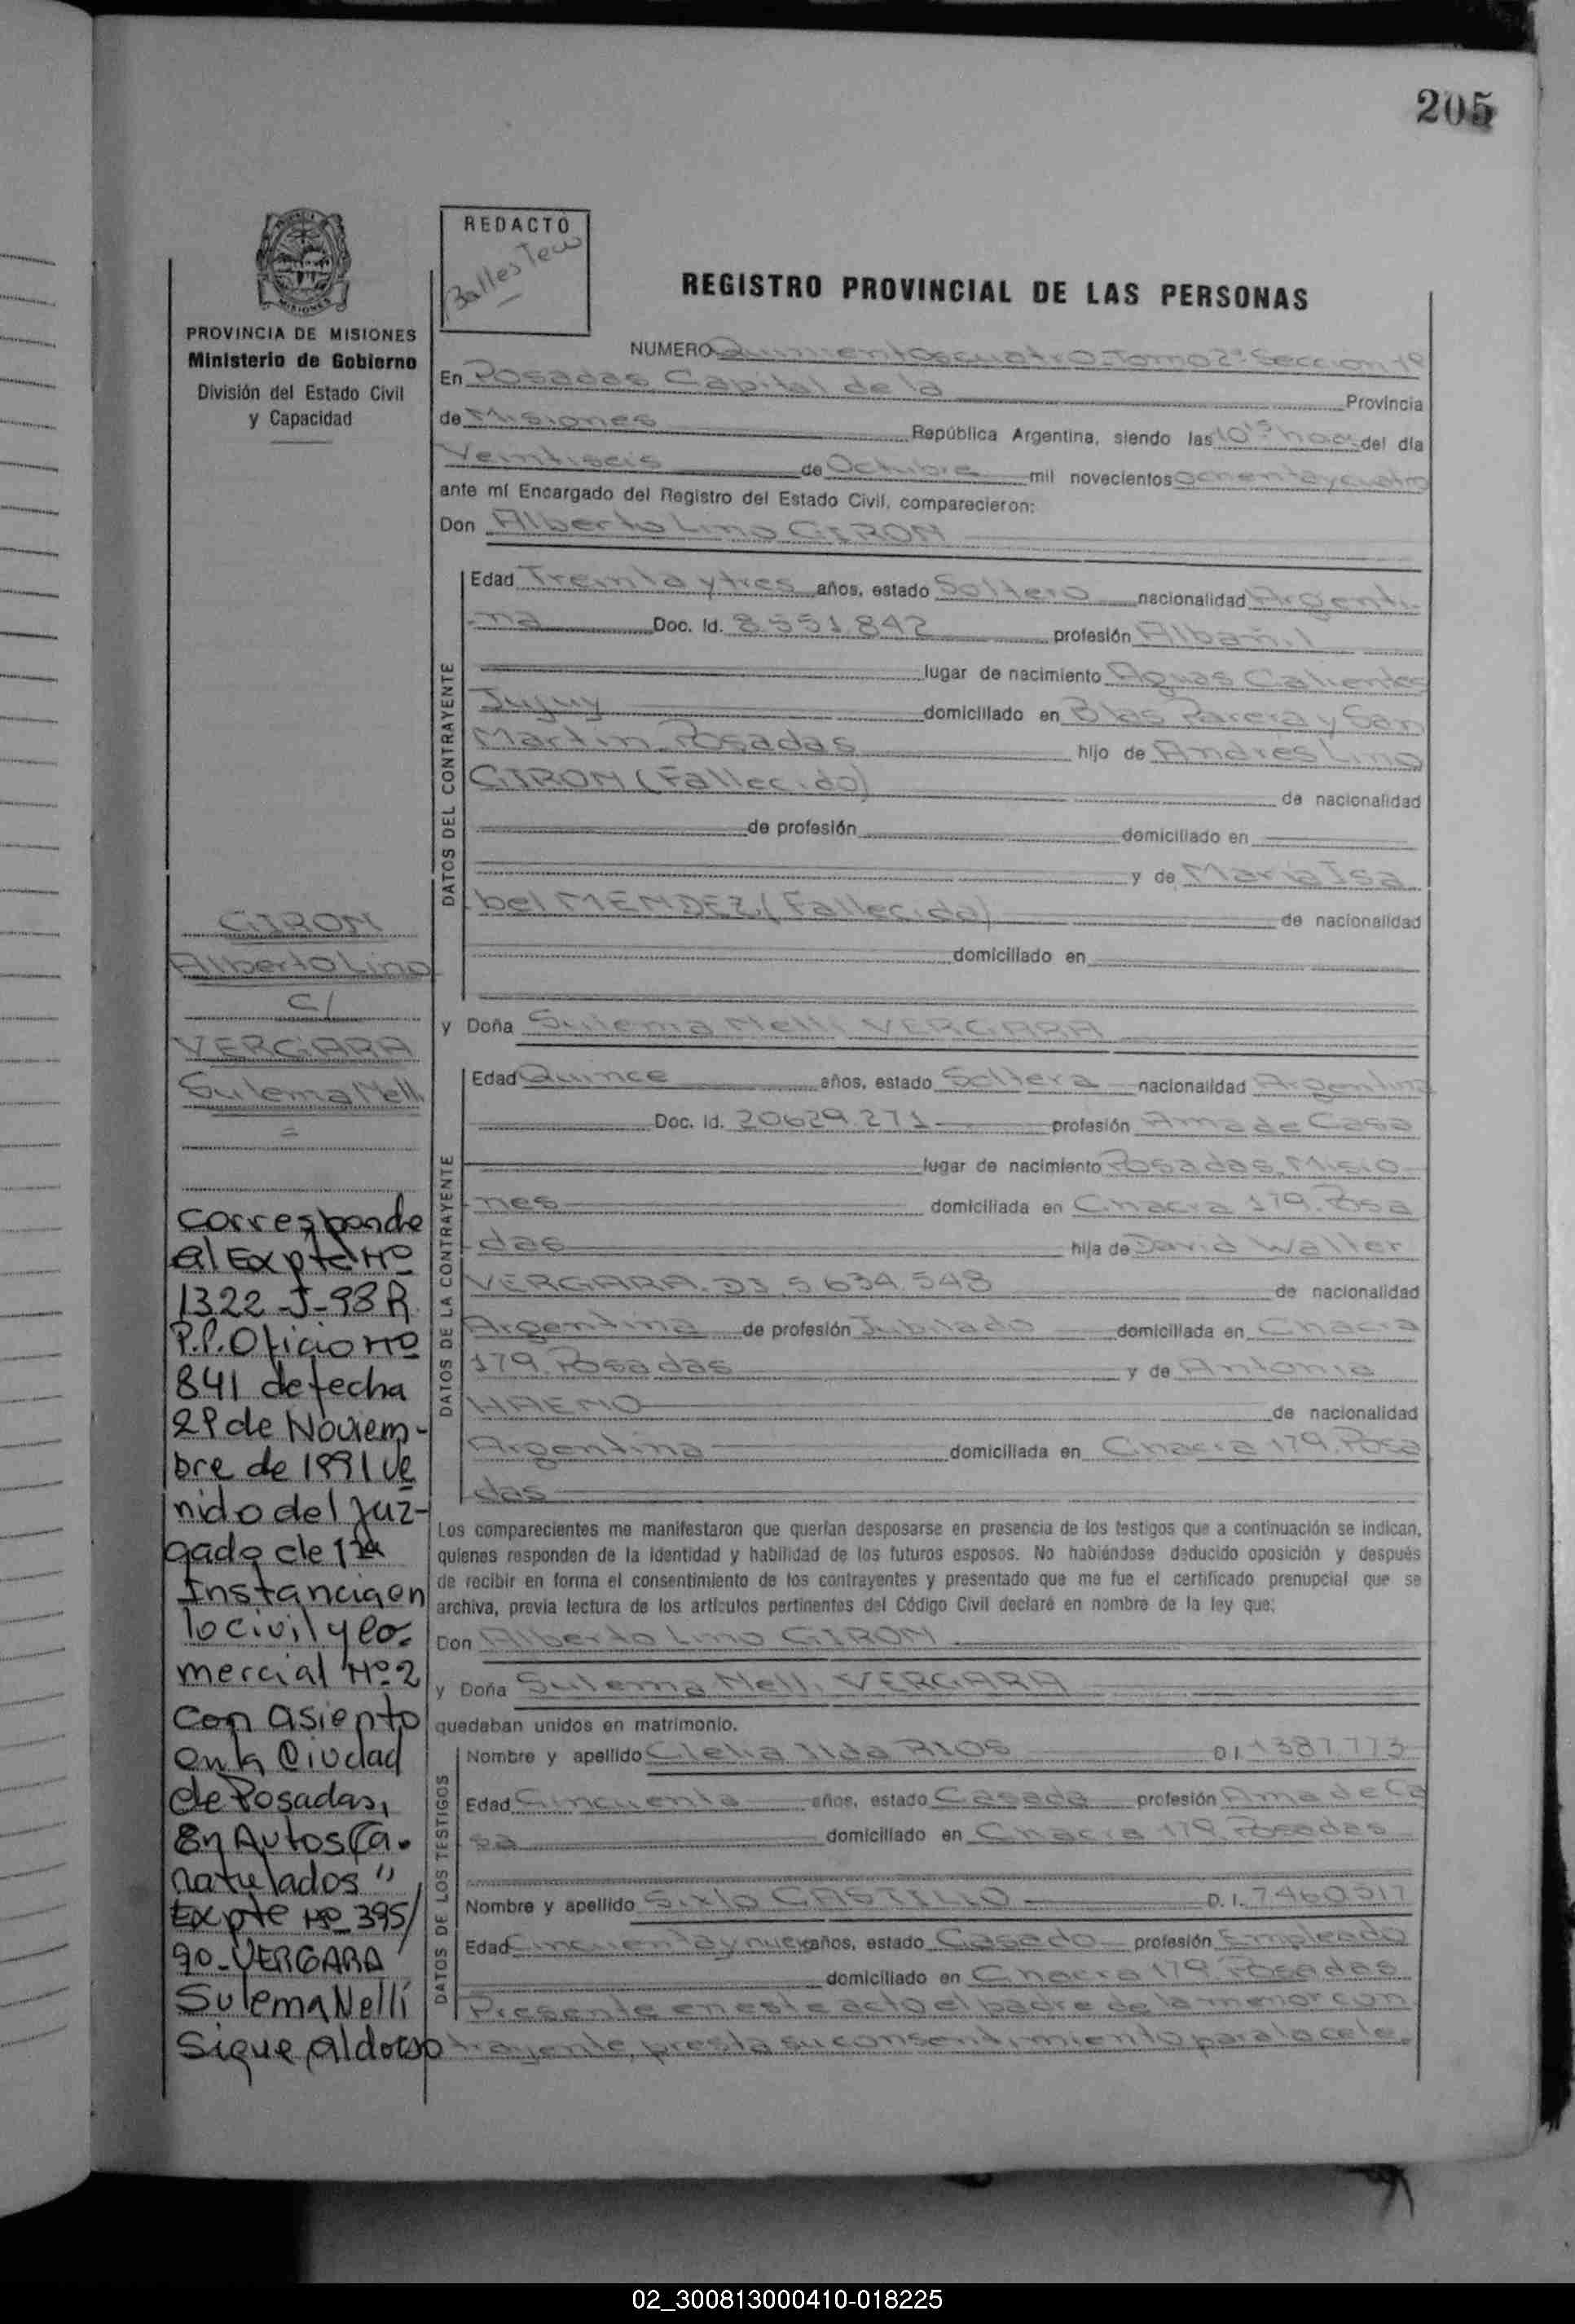 205
REDACTÓ
BallesTero
REGISTRO PROVINCIAL DE LAS PERSONAS
PROVINCIA DE MISIONES
Ministerio de Gobierno
División del Estado Civil
y Capacidad
NUMERO Quinientos cuatro Tomo 2º Seccion 1º
En Posadas Capital de la Provincia
de Misiones República Argentina, siendo las 10 horas del día
Veintiseis de Octubre mil novecientos ochentaycuatro
ante mí Encargado del Registro del Estado Civil, comparecieron:
Don Alberto Lino GIRON
DATOS DEL CONTRAYENTE
Edad Treintaytres años, estado Soltero nacionalidad Argenti-
na Doc. Id. 8.551.842 profesión Albañil
lugar de nacimiento Aguas Calientes
Jujuy domiciliado en Blas Parera y San
Martin. Posadas hijo de Andres Lino
GIRON (Fallecido) de nacionalidad
de profesión domiciliado en
y de Maria Isa
bel MENDEZ (Fallecido) de nacionalidad
domiciliado en
y Doña Sulema Nelli VERGARA
DATOS DE LA CONTRAYENTE
Edad Quince años, estado Soltera nacionalidad Argentina
Doc. Id. 20629.271 profesión Ama de Casa
lugar de nacimiento Posadas. Misio
nes domiciliada en Chacra 179. Posa
das hija de David Walter
VERGARA. DI. 5.634.548 de nacionalidad
Argentina de profesión Jubilado domiciliada en Chacra
179. Posadas y de Antonia
HAENO de nacionalidad
Argentina domiciliada en Chacra 179. Posa
das
Los comparecientes me manifestaron que querían desposarse en presencia de los testigos que a continuación se indican,
quienes responden de la identidad y habilidad de los futuros esposos. No habiéndose deducido oposición y después
de recibir en forma el consentimiento de los contrayentes y presentado que me fue el certificado prenupcial que se
archiva, previa lectura de los artículos pertinentes del Código Civil declaré en nombre de la ley que:
Don Alberto Lino GIRON
y Doña Sulema Nelli VERGARA
quedaban unidos en matrimonio.
DATOS DE LOS TESTIGOS
Nombre y apellido Clelia Ilda RIOS D.I. 1387773
Edad Cincuenta años, estado Casada profesión Ama de Ca
sa domiciliado en Chacra 179. Posadas
Nombre y apellido Sixto CASTILLO D.I. 7460517
Edad Cincuentaynueve años, estado Casado profesión Empleado
domiciliado en Chacra 179. Posadas
Presente en este acto el padre de la menor con
trayente, presta su consentimiento para la cele-
GIRON
Alberto Lino
C/
VERGARA
Sulema Nelli
=
corresponde
al Expte Nº
1322-J-93 R.
P.P. Oficio Nº
841 de fecha
29 de Noviem-
bre de 1991 ve
nido del Juz-
gado de 1ra
Instancia en
lo civil y co-
mercial Nº 2
con asiento
en la Ciudad
de Posadas,
En Autos Ca-
ratulados "
Expte Nº 395/
90-VERGARA
Sulema Nelli
Sigue al dorso
02_300813000410-018225